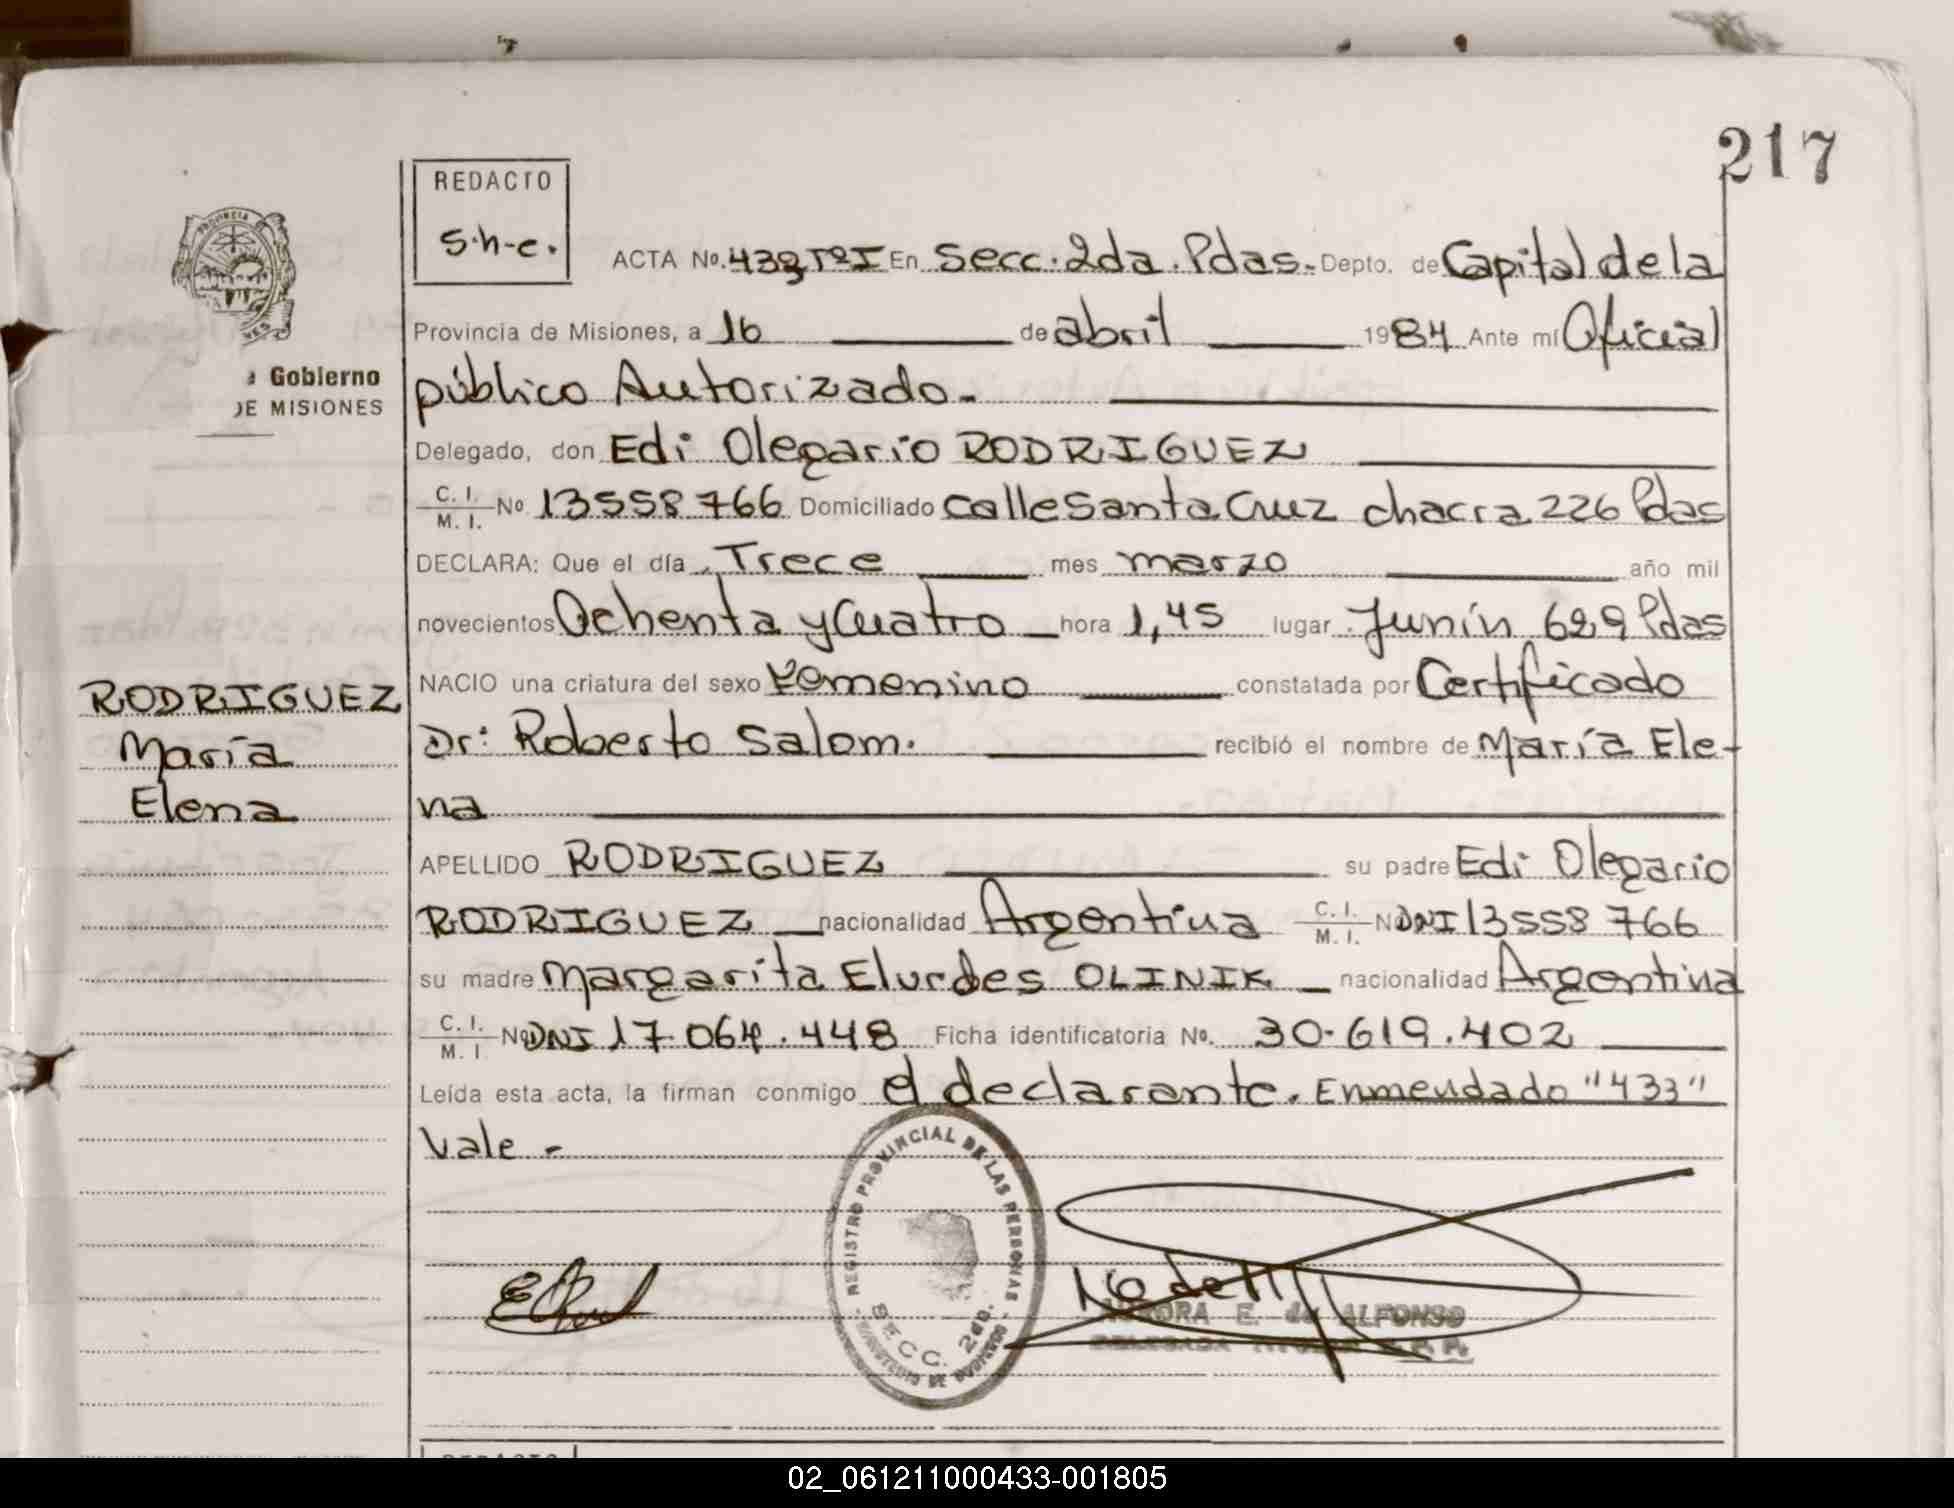 217
REDACTO
S.h-e.
PROVINCIA
Gobierno
DE MISIONES
ACTA No. 433 TºI En Secc. 2da. Pdas. Depto. de Capital de la
Provincia de Misiones, a 16 de abril 1984 Ante mí Oficial
público Autorizado.
Delegado, don Edi Olegario RODRIGUEZ
C. I. M. I. No 13558766 Domiciliado calle Santa Cruz chacra 226 Pdas
DECLARA: Que el día Trece mes marzo año mil
novecientos Ochenta y Cuatro hora 1,45 lugar Junín 629 Pdas
NACIO una criatura del sexo Femenino constatada por Certificado
Dr: Roberto Salom. recibió el nombre de María Ele-
na
RODRIGUEZ
María
Elena
APELLIDO RODRIGUEZ su padre Edi Olegario
RODRIGUEZ nacionalidad Argentina C. I. M. I. No DNI 13558766
su madre Margarita Elurdes OLINIK nacionalidad Argentina
C. I. M. I. No DNI 17.064.448 Ficha identificatoria No. 30.619.402
Leída esta acta, la firman conmigo el declarante. Enmendado "433"
Vale -
REGISTRO PROVINCIAL DE LAS PERSONAS
SECC. 2da.
E. de ALFONSO
REDACTO
02_061211000433-001805